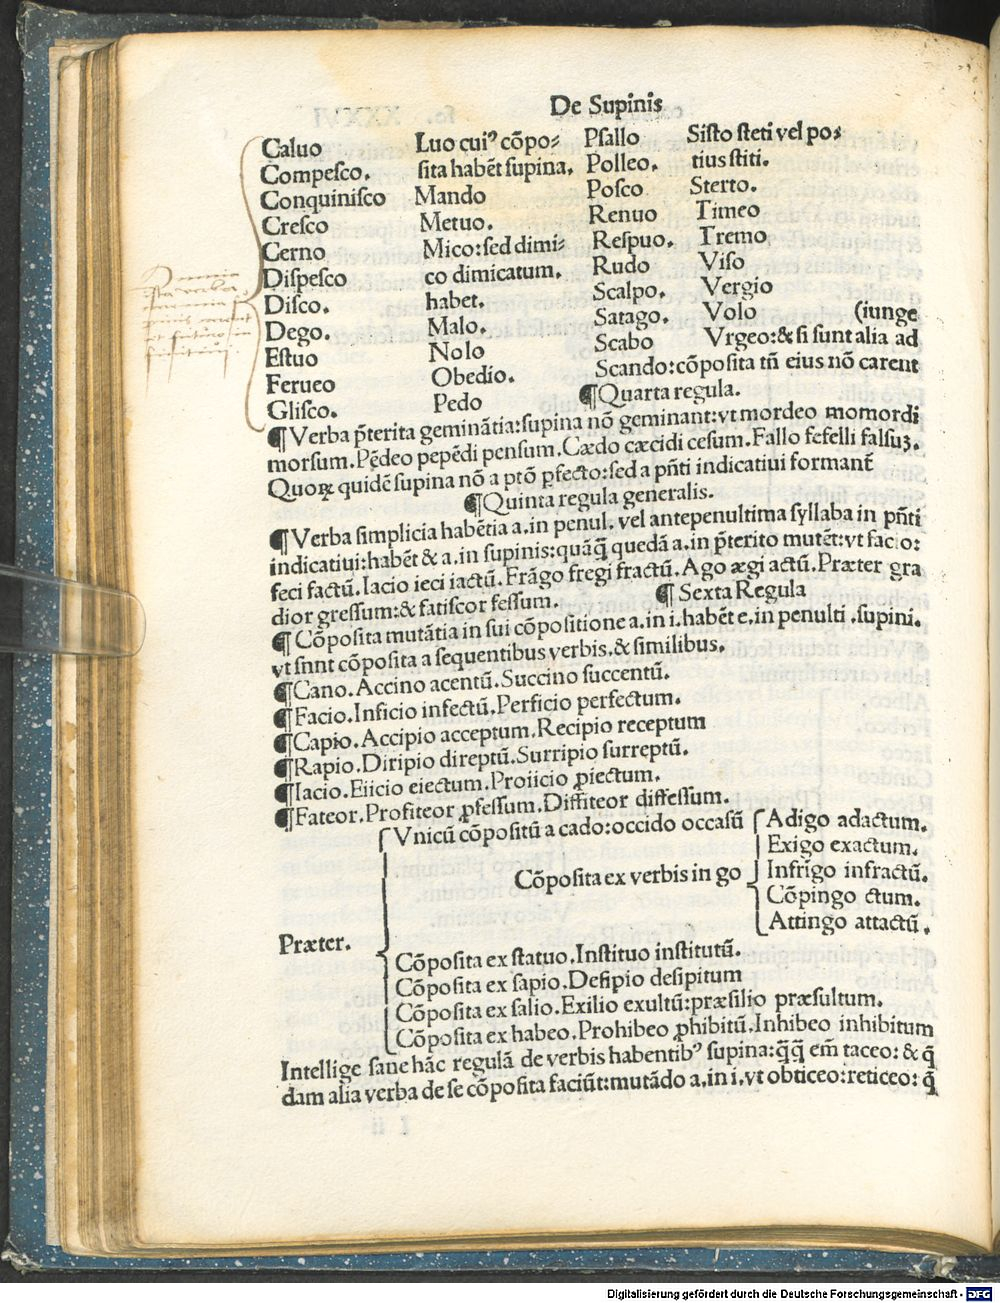 De Supinis
Caluo
Compesco.
Conquinisco
Cresco
Cerno
Dispesco
Disco.
Dego.
Estuo
Ferueo
Glisco.
Luo cuiꝰ cōpo⸗
sita habēt supina.
Mando
Metuo.
Mico: sed dimi⸗
co dimicatum.
habet.
Malo.
Nolo
Obedio.
Pedo
Psallo
Polleo.
Posco
Renuo
Respuo.
Rudo
Scalpo.
Satago.
Scabo
Sisto steti vel po⸗
tius stiti.
Sterto.
Timeo
Tremo
Viso
Vergio
Volo (iunge
Vrgeo: & si sunt alia ad
Scando: cōposita tñ eius nō carent
¶ Quarta regula.
¶ Verba p̄terita geminātia: supina nō geminant: vt mordeo momordi
morsum. Pēdeo pepēdi pensum. Cædo cæcidi cesum. Fallo fefelli falsuꝫ.
Quoꝝ quidē supina nō a ptō ꝑfecto: sed a pñti indicatiui formant̄
¶ Quinta regula generalis.
¶ Verba simplicia habētia a. in penul. vel antepenultima syllaba in pñti
indicatiui: habēt & a. in supinis: quāq̄ quedā a. in p̄terito mutēt: vt facio:
feci factū. Iacio ieci iactū. Frāgo fregi fractū. Ago ægi actū. Præter gra
dior gressum: & fatiscor fessum. ¶ Sexta Regula
¶ Cōposita mutātia in sui cōpositione a. in i. habēt e. in penulti . supini.
vt snnt cōposita a sequentibus verbis. & similibus.
¶ Cano. Accino acentū. Succino succentū.
¶ Facio. Inficio infectū. Perficio perfectum.
¶ Capio. Accipio acceptum. Recipio receptum
¶ Rapio. Diripio direptū. Surripio surreptū.
¶ Iacio. Eiicio eiectum. Proiicio ꝓiectum.
¶ Fateor. Profiteor ꝓfessum. Diffiteor diffessum.
Præter.
Vnicū cōpositū a cado: occido occasū
Cōposita ex verbis in go
Adigo adactum.
Exigo exactum.
Infrīgo infractū.
Cōpingo ctum.
Attingo attactū.
Cōposita ex statuo. Instituo institutū.
Cōposita ex sapio. Desipio desipitum
Cōposita ex salio. Exilio exultū: præsilio præsultum.
Cōposita ex habeo. Prohibeo ꝓhibitū. Inhibeo inhibitum
Intellige sane hāc regulā de verbis habentibꝰ supina: q̄q̄ em̄ taceo: & q̄
dam alia verba de se cōposita faciūt: mutādo a. in i. vt obticeo: reticeo: q̄
Digitalisierung gefördert durch die Deutsche Forschungsgemeinschaft - DFG